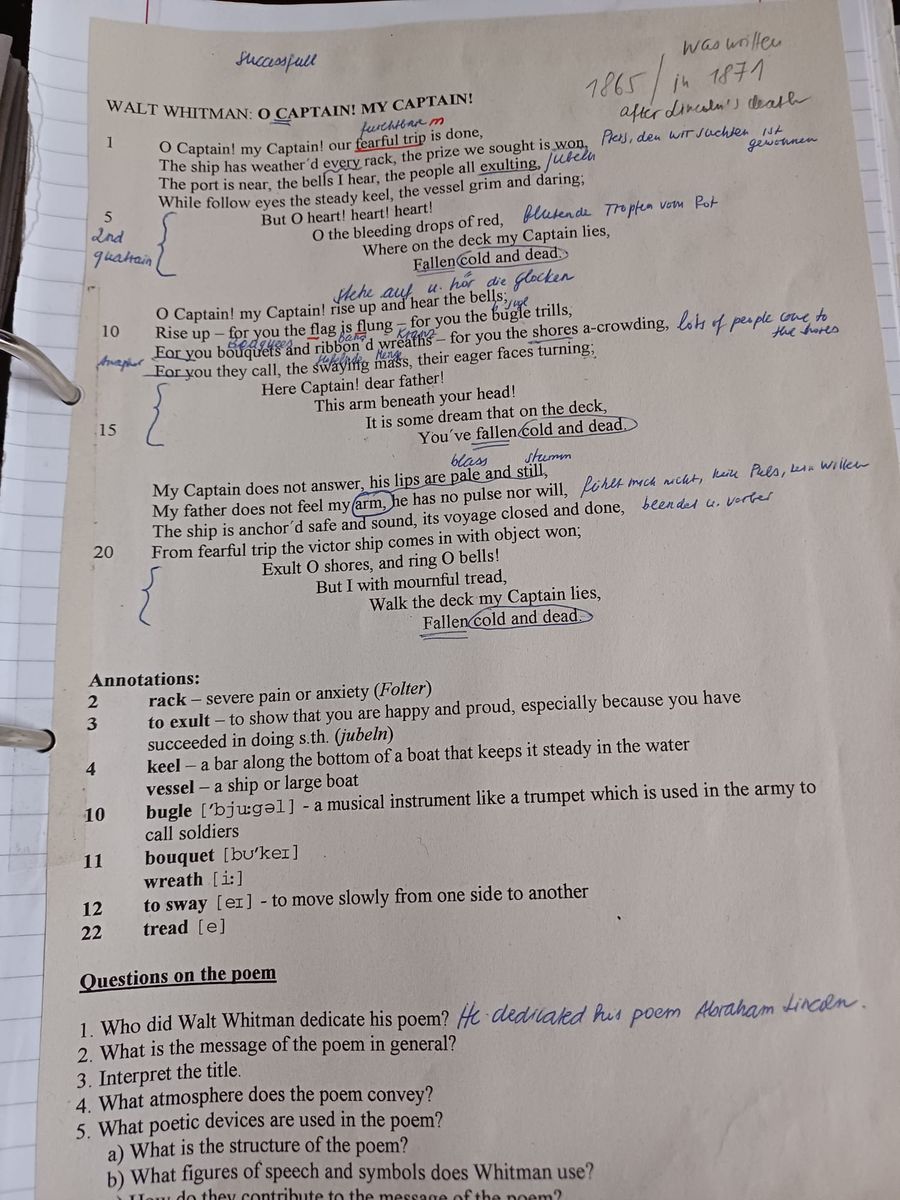 Successfull
was written
1865 / in 1871
after Lincoln's death
WALT WHITMAN: O CAPTAIN! MY CAPTAIN!
furchtbar
1 O Captain! my Captain! our fearful trip is done,
The ship has weather´d every rack, the prize we sought is won, Preis, den wir suchten ist gewonnen
The port is near, the bells I hear, the people all exulting, jubeln
While follow eyes the steady keel, the vessel grim and daring;
5 But O heart! heart! heart!
2nd quatrain
O the bleeding drops of red, blutende Tropfen vom Rot
Where on the deck my Captain lies,
Fallen cold and dead.
stehe auf u. hör die Glocken
O Captain! my Captain! rise up and hear the bells;
10 Rise up – for you the flag is flung – for you the bugle trills,
Kranz
For you bouquets and ribbon´d wreaths – for you the shores a-crowding, lots of people come to the shores
Anapher For you they call, the swaying mass, their eager faces turning;
Here Captain! dear father!
This arm beneath your head!
It is some dream that on the deck,
15 You´ve fallen cold and dead.
blass stumm
My Captain does not answer, his lips are pale and still,
My father does not feel my arm, he has no pulse nor will, fühlt mich nicht, kein Puls, kein Willen
The ship is anchor´d safe and sound, its voyage closed and done, beendet u. vorbei
20 From fearful trip the victor ship comes in with object won;
Exult O shores, and ring O bells!
But I with mournful tread,
Walk the deck my Captain lies,
Fallen cold and dead.
Annotations:
2 rack – severe pain or anxiety (Folter)
3 to exult – to show that you are happy and proud, especially because you have
succeeded in doing s.th. (jubeln)
4 keel – a bar along the bottom of a boat that keeps it steady in the water
vessel – a ship or large boat
10 bugle [ˈbjuːgəl] - a musical instrument like a trumpet which is used in the army to
call soldiers
11 bouquet [buˈkeɪ]
wreath [iː]
12 to sway [eɪ] - to move slowly from one side to another
22 tread [e]
Questions on the poem
1. Who did Walt Whitman dedicate his poem? He dedicated his poem Abraham Lincoln.
2. What is the message of the poem in general?
3. Interpret the title.
4. What atmosphere does the poem convey?
5. What poetic devices are used in the poem?
a) What is the structure of the poem?
b) What figures of speech and symbols does Whitman use?
) How do they contribute to the message of the poem?